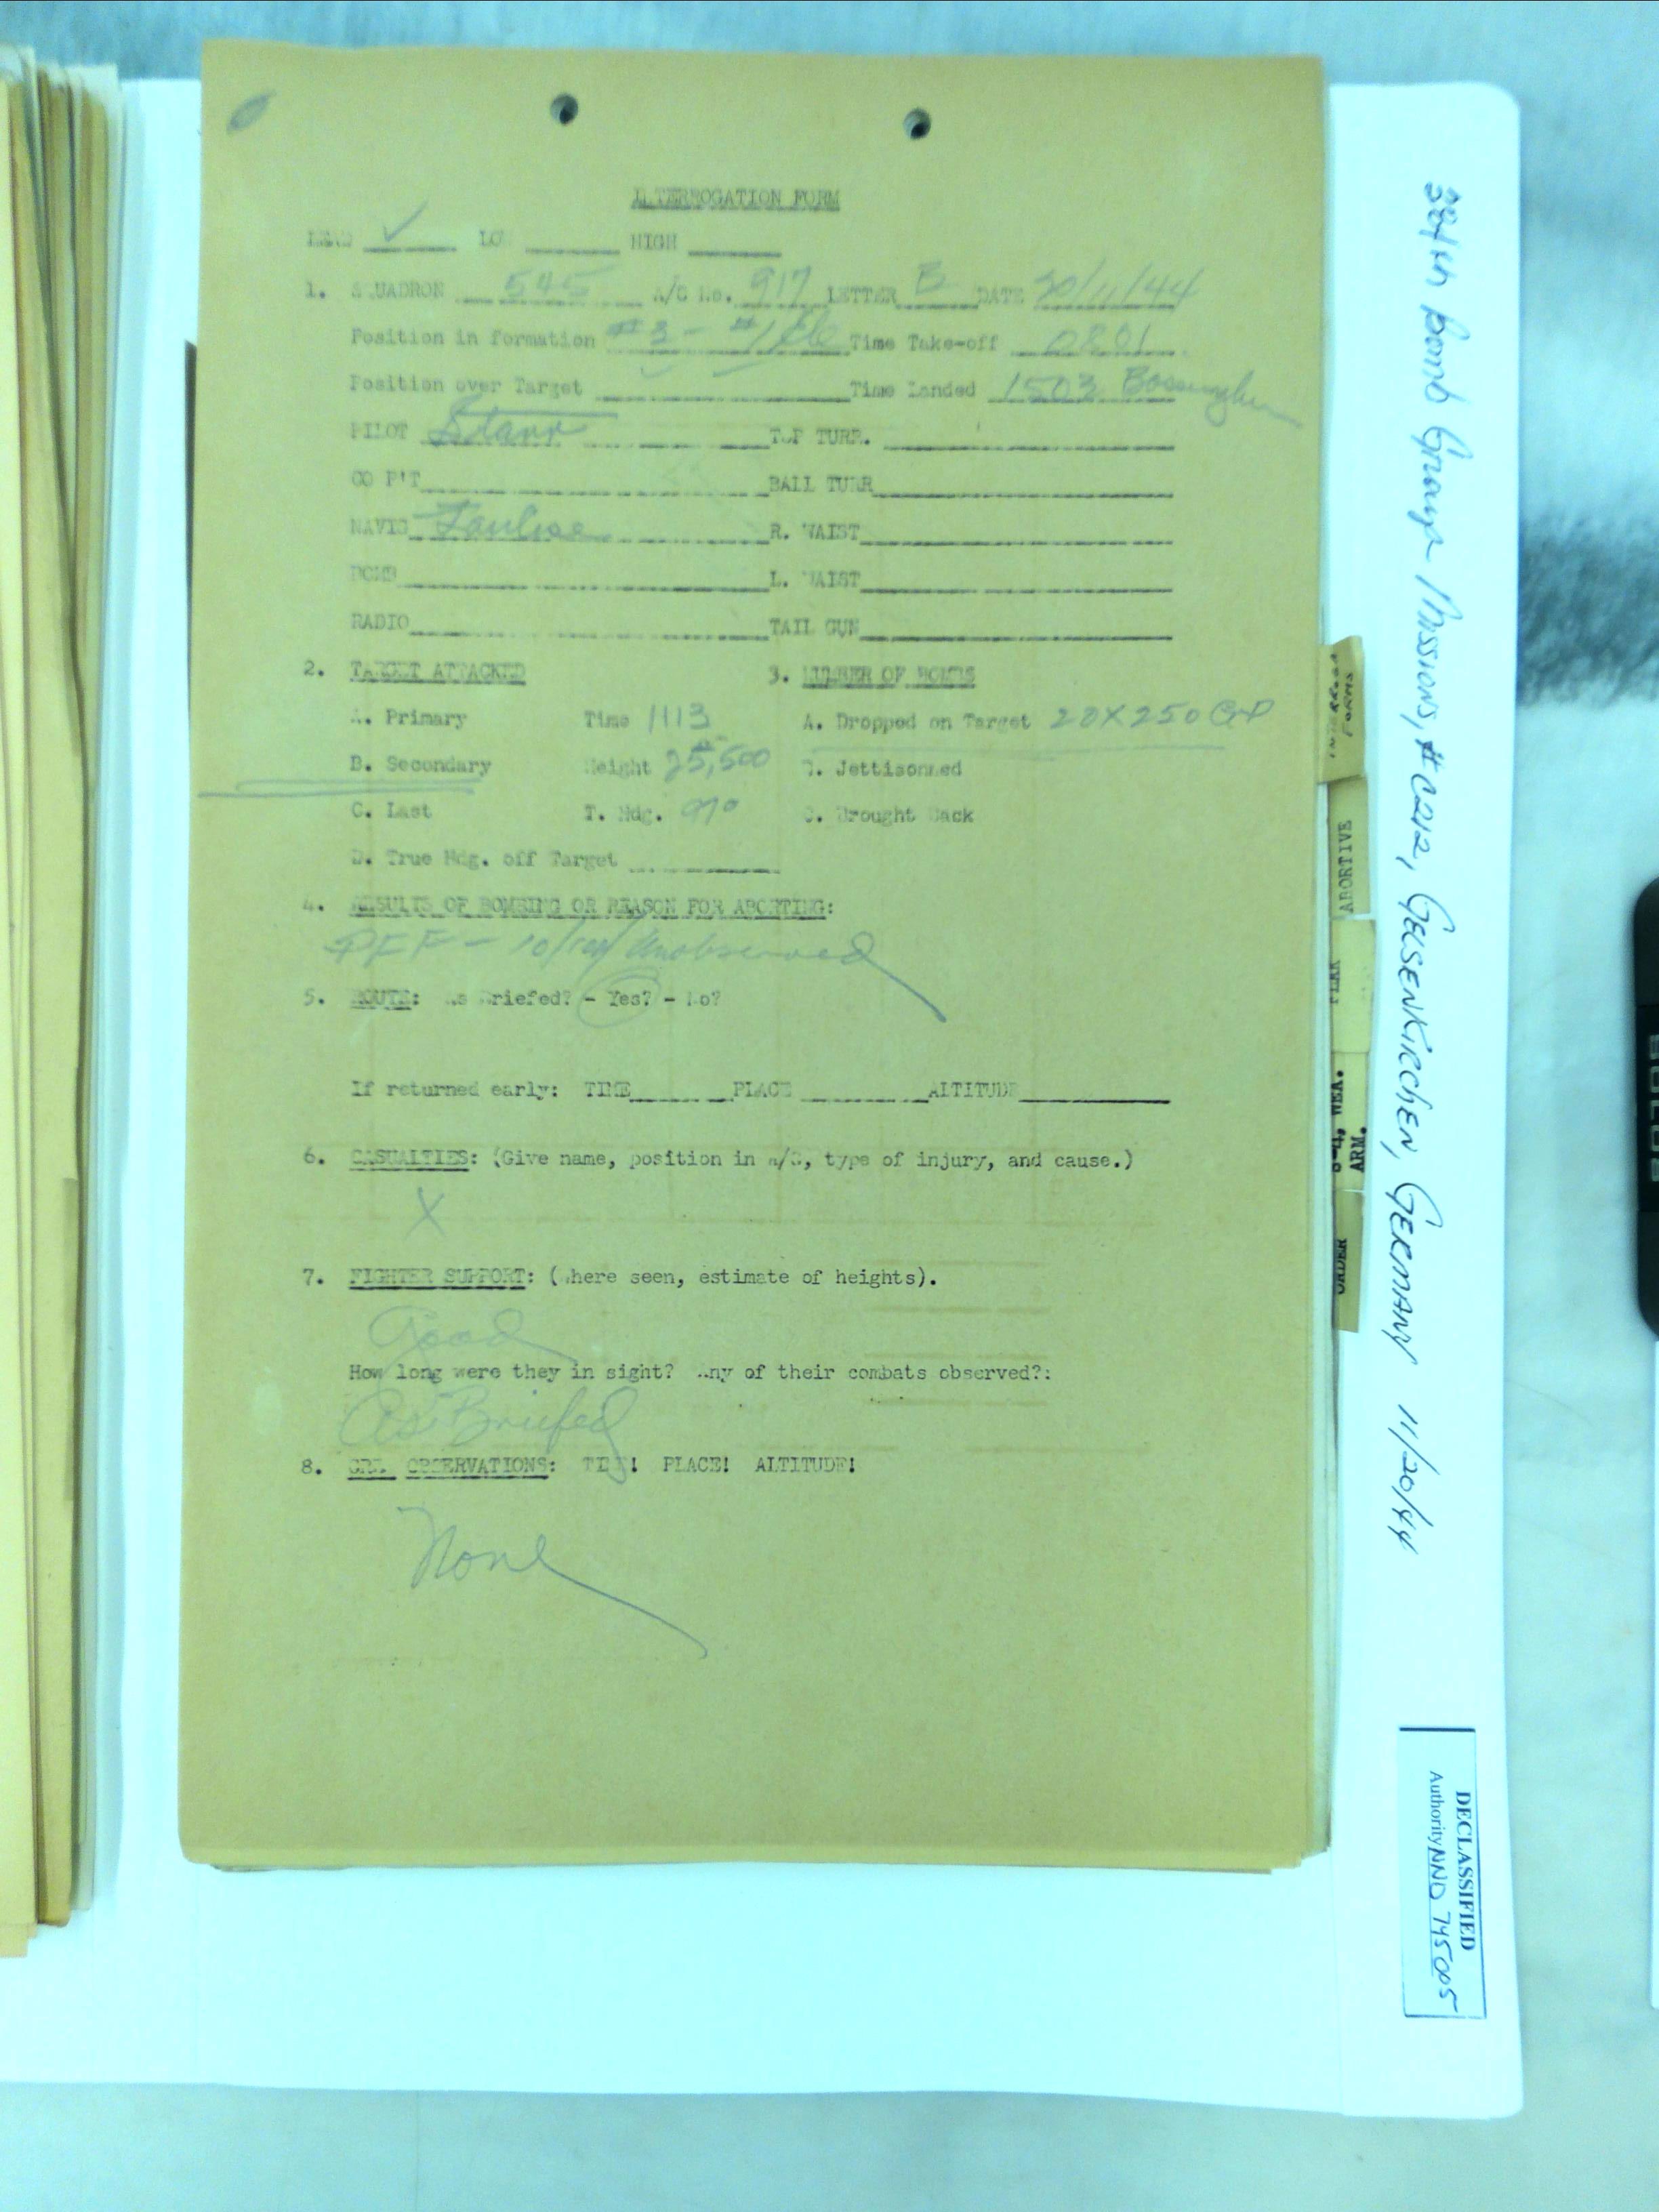 INTERROGATION FORM
LEAD ✓ LOW HIGH
1. SQUADRON 545 A/C No. 917 LETTER B DATE 20/11/44
Position in formation #3 - #1 Time Take-off 0801
Position over Target Time Landed 1503
PILOT Starr TOP TURR.
CO P'T BALL TURR
NAVIG R. WAIST
BOMB L. WAIST
RADIO TAIL GUN
2. TARGET ATTACKED 3. NUMBER OF BOMBS
A. Primary Time 1113 A. Dropped on Target 20X250 GP
B. Secondary Height 25,500 B. Jettisonned
C. Last T. Hdg. 97° C. Brought Back
D. True Hdg. off Target
4. RESULTS OF BOMBING OR REASON FOR ABORTING:
PFF - 10/10 Unobserved
5. ROUTE: As Briefed? - Yes? - No?
If returned early: TIME PLACE ALTITUDE
6. CASUALTIES: (Give name, position in A/C, type of injury, and cause.)
X
7. FIGHTER SUPPORT: (Where seen, estimate of heights).
Good
How long were they in sight? Any of their combats observed?:
As Briefed
8. GRD. OBSERVATIONS: TIME! PLACE! ALTITUDE!
None
384th Bomb Group Missions, #C212, GELSENKIRCHEN, GERMANY 11/20/44
FORMS
ABORTIVE
FLAK
S-4, WEA.
ARM.
ORDER
DECLASSIFIED
Authority NND 745005